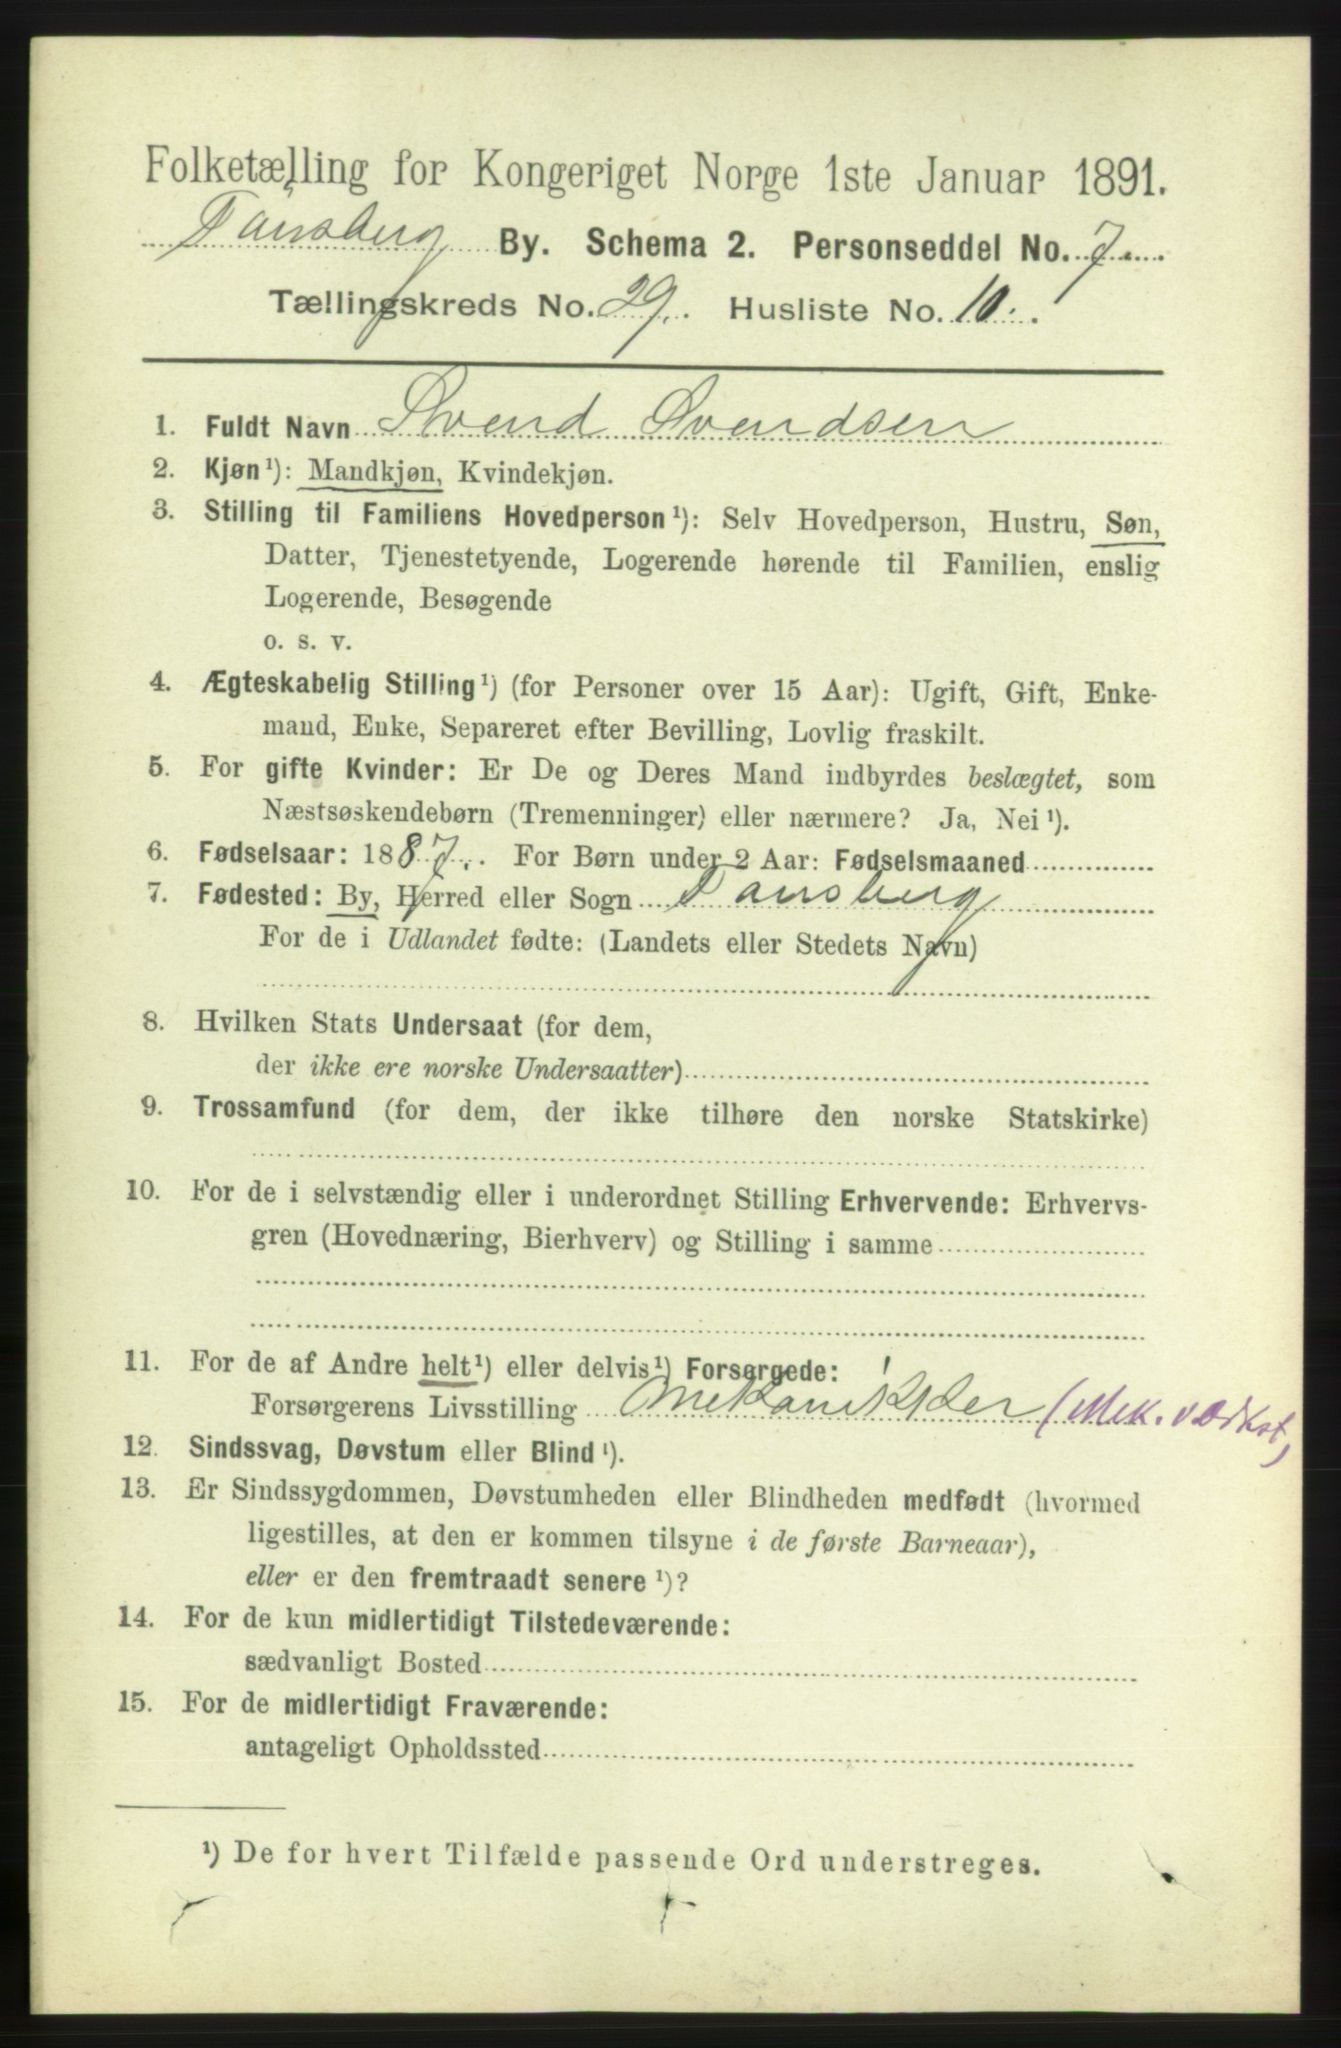 Folketælling for Kongeriget Norge 1ste Januar 1891.
Tønsberg By. Schema 2. Personseddel No. 7.
Tællingskreds No. 29. Husliste No. 10.
1. Fuldt Navn Svend Svendsen
2. Kjøn¹): Mandkjøn, Kvindekjøn.
3. Stilling til Familiens Hovedperson¹): Selv Hovedperson, Hustru, Søn,
Datter, Tjenestetyende, Logerende hørende til Familien, enslig
Logerende, Besøgende
o. s. v.
4. Ægteskabelig Stilling¹) (for Personer over 15 Aar): Ugift, Gift, Enke-
mand, Enke, Separeret efter Bevilling, Lovlig fraskilt.
5. For gifte Kvinder: Er De og Deres Mand indbyrdes beslægtet, som
Næstsøskendebørn (Tremenninger) eller nærmere? Ja, Nei¹).
6. Fødselsaar: 1887. For Børn under 2 Aar: Fødselsmaaned
7. Fødested: By, Herred eller Sogn Tønsberg
For de i Udlandet fødte: (Landets eller Stedets Navn)
8. Hvilken Stats Undersaat (for dem,
der ikke ere norske Undersaatter)
9. Trossamfund (for dem, der ikke tilhøre den norske Statskirke)
10. For de i selvstændig eller i underordnet Stilling Erhvervende: Erhvervs-
gren (Hovednæring, Bierhverv) og Stilling i samme
11. For de af Andre helt¹) eller delvis¹) Forsørgede:
Forsørgerens Livsstilling Mekanikker (Mek. værkst)
12. Sindssvag, Døvstum eller Blind¹).
13. Er Sindssygdommen, Døvstumheden eller Blindheden medfødt (hvormed
ligestilles, at den er kommen tilsyne i de første Barneaar),
eller er den fremtraadt senere¹)?
14. For de kun midlertidigt Tilstedeværende:
sædvanligt Bosted
15. For de midlertidigt Fraværende:
antageligt Opholdssted
¹) De for hvert Tilfælde passende Ord understreges.